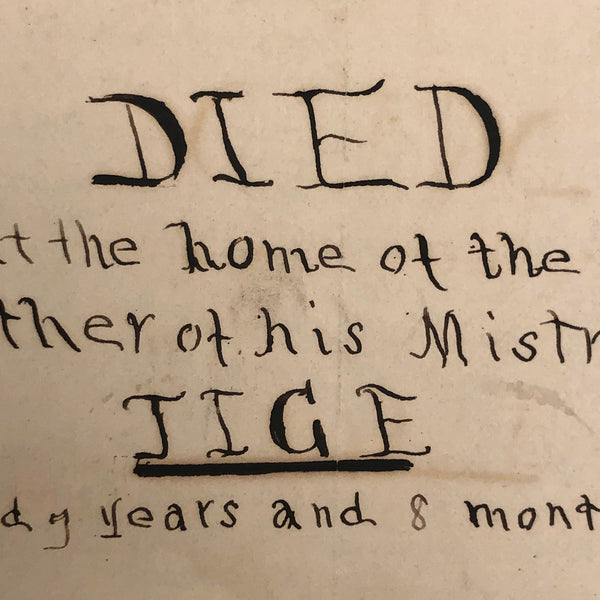 DIED
t the home of the
ther of his Mistr
TIGE
d 9 years and 8 mont